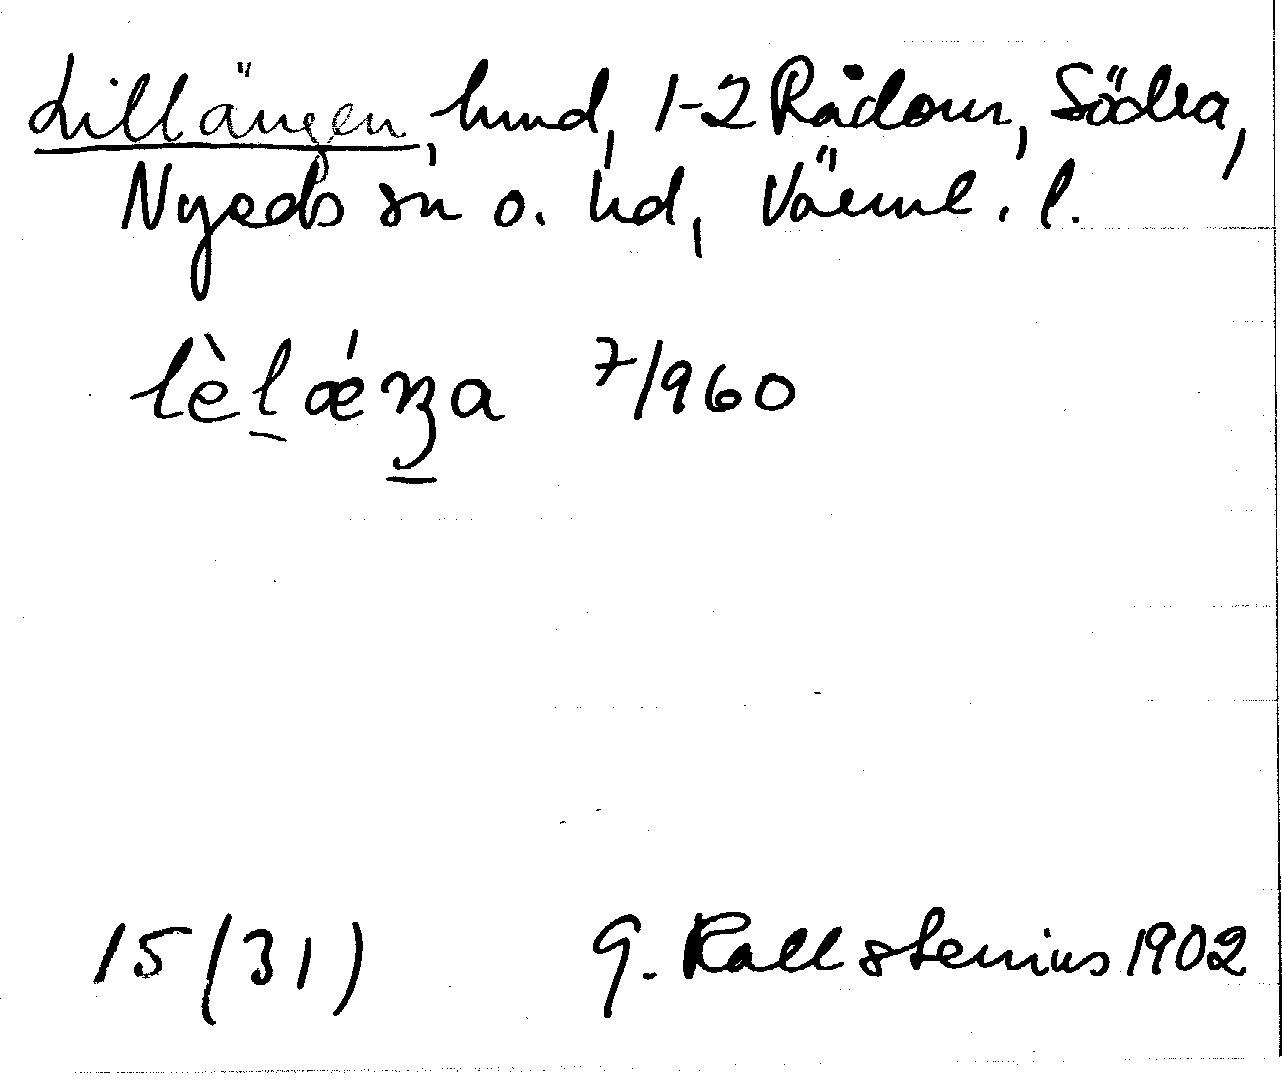 Lillängen, hmd, 1-2 Rådom, Södra,
Nyeds sn o. hd, Värml. l.
lèl ǽnʒa 7/960
15 (31) G. Kallstenius 1902